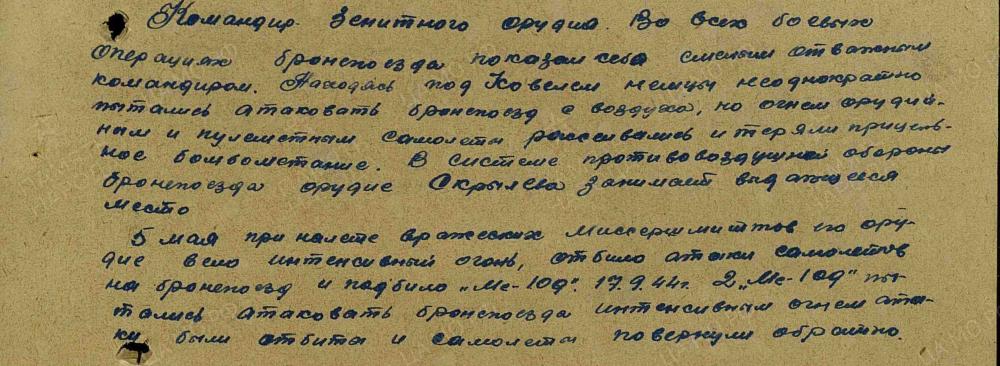 Командир зенитного орудия. Во всех боевых
операциях бронепоезда показал себя смелым отважным
командиром. Находясь под Ковелем немцы неоднократно
пытались атаковать бронепоезд с воздуха, но огнем орудий-
ным и пулеметным самолеты рассеивались и теряли прицель-
ное бомбометание. В системе противовоздушной обороны
бронепоезда орудие Скрылева занимает выдающееся
место
5 мая при налете вражеских миссершмиттов его ору-
дие вело интенсивный огонь, отбило атаки самолетов
на бронепоезд и подбило „Ме-109". 17.9.44г. 2 „Ме-109" пы-
тались атаковать бронепоезда интенсивным огнем ата-
ки были отбиты и самолеты повернули обратно.